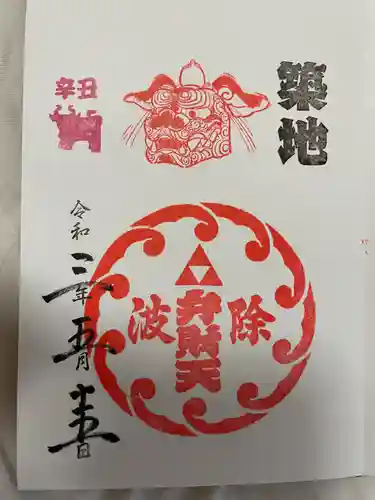 築地
辛丑
波除
弁財天
令和三年五月 日